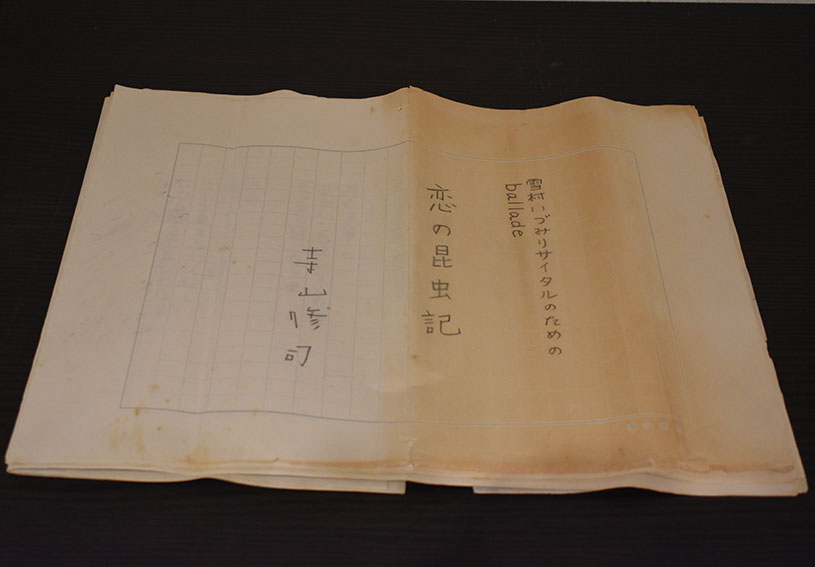 雪村いづみリサイタルのための
ballade
恋の昆虫記
寺山修司